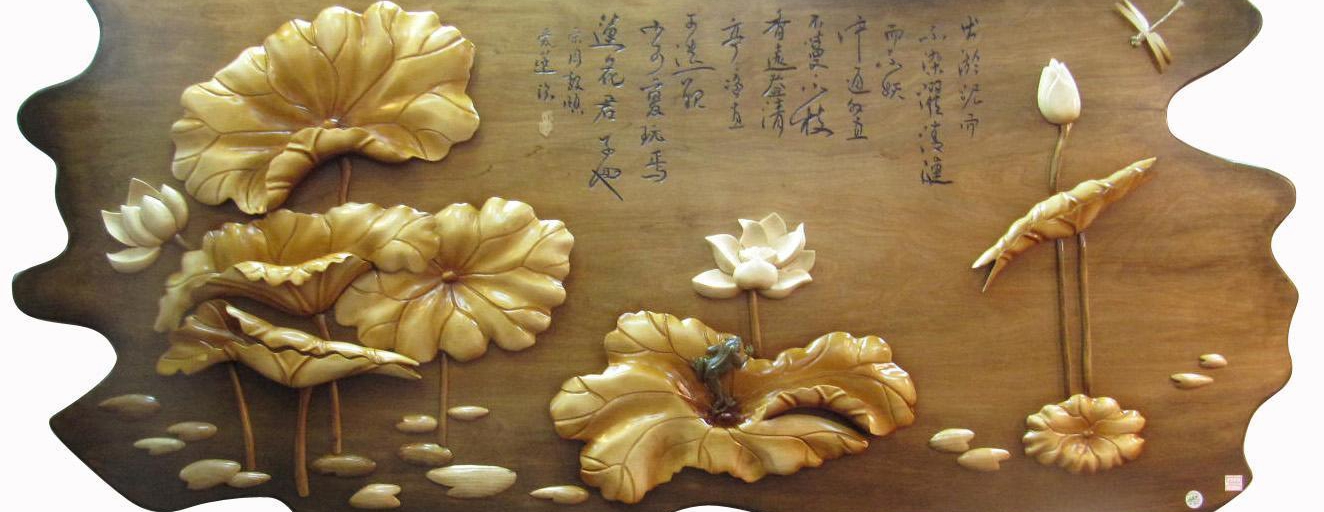 出淤泥而
不染濯清漣
而不妖
中通外直
不蔓不枝
香遠益清
亭淨直
可遠觀
不可褻玩焉
蓮花君子也
宋周敦頤
愛蓮說